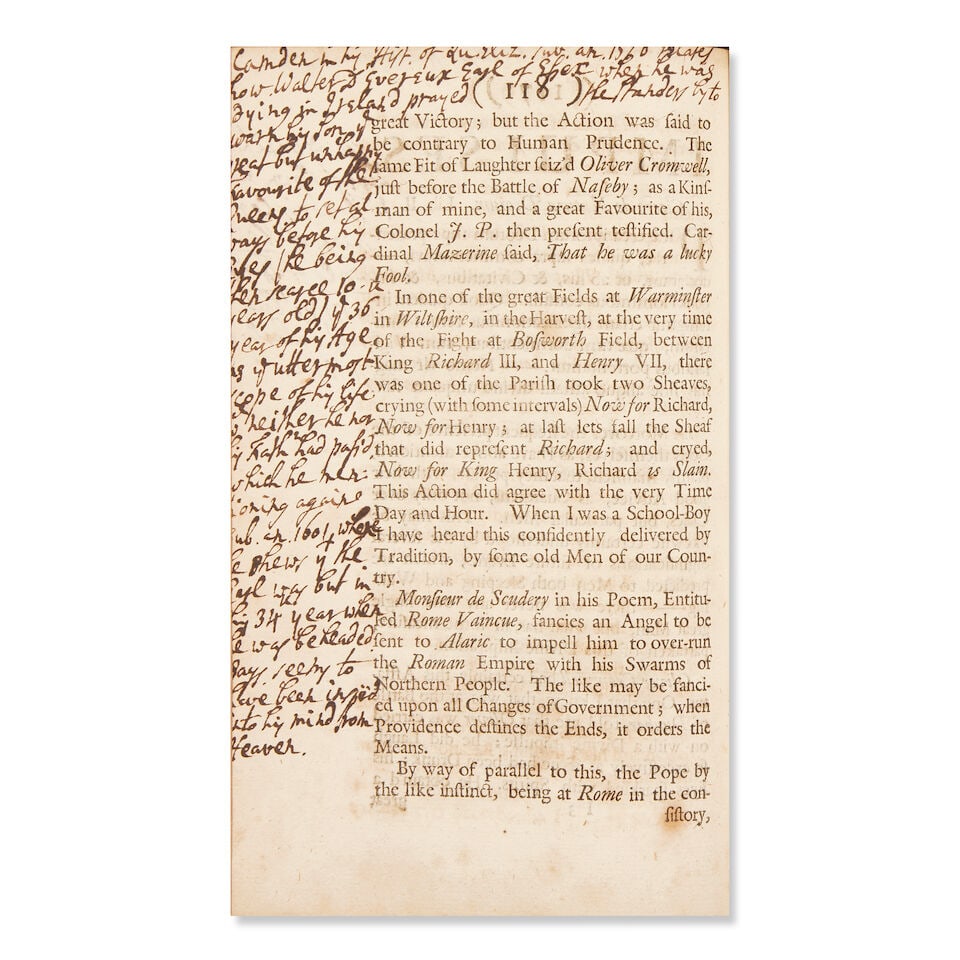 Camden in his Hist. of Qu. Eliz. sub. an. 1576 relates
how Walter D'Evereux Earl of Essex when he was
dying in Ireland prayed (the standers by to
warn his son yt
great but unhappy
favourite of the
Queen to set al
ways before his
eyes (he being
then scarce 10
years old) ye 36
year of his Age
as ye uttermost
scope of his life
neither he nor
his Fath had pass'd
which he men:
tioning againe
sub. an. 1601 where
he shews yt the
Earl was but in
his 34 year when
he was beheaded
says. seems to
have been inspired
into his mind from
Heaven.
( 118 )
great Victory; but the Action was ſaid to
be contrary to Human Prudence. The
ſame Fit of Laughter ſeiz'd Oliver Cromwell,
juſt before the Battle of Naſeby; as a Kinſ-
man of mine, and a great Favourite of his,
Colonel J. P. then preſent teſtified. Car-
dinal Mazerine ſaid, That he was a lucky
Fool.
In one of the great Fields at Warminſter
in Wiltſhire, in the Harveſt, at the very time
of the Fight at Boſworth Field, between
King Richard III, and Henry VII, there
was one of the Pariſh took two Sheaves,
crying (with ſome intervals) Now for Richard,
Now for Henry; at laſt lets fall the Sheaf
that did repreſent Richard; and cryed,
Now for King Henry, Richard is Slain.
This Action did agree with the very Time
Day and Hour. When I was a School-Boy
I have heard this confidently delivered by
Tradition, by ſome old Men of our Coun-
try.
Monſieur de Scudery in his Poem, Entitu-
led Rome Vaincue, fancies an Angel to be
ſent to Alaric to impell him to over-run
the Roman Empire with his Swarms of
Northern People. The like may be fanci-
ed upon all Changes of Government; when
Providence deſtines the Ends, it orders the
Means.
By way of parallel to this, the Pope by
the like inſtinct, being at Rome in the con-
ſiſtory,